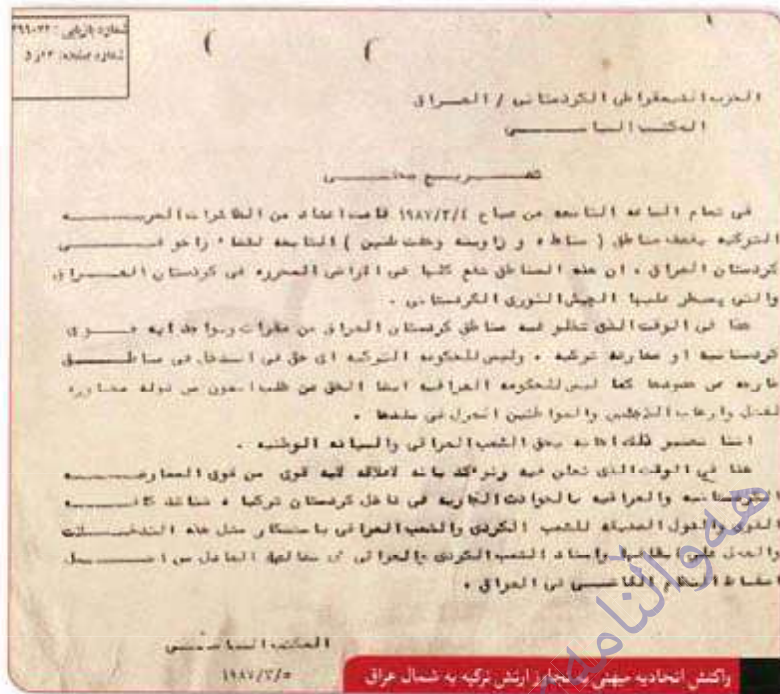 شماره بازیابی :
شماره صفحه:
الحزب الديمقراطي الكردستاني / العراق
المكتب السياسي
تصريح صحفي
في تمام الساعة التاسعة من صباح ١٩٨٧/٣/٤ قامت اعداد من الطائرات الحربيه
التركيه بقصف مناطق ( سناط و زاويته وهفت طنين ) التابعة لقضاء زاخو في
كردستان العراق ، ان هذه المناطق تقع كليا في الاراضي المحرره في كردستان العراق
والتي يسيطر عليها الجيش الثوري الكردستاني .
هذا في الوقت الذي تخلو فيه مناطق كردستان العراق من مقرات وتواجد ايه قوى
كردستانيه او معارضة تركيه ، وليس للحكومه التركيه اي حق في التدخل في مناطق
خارجه عن حدودها كما ليس للحكومه العراقيه ايضا الحق في طلب العون من دوله مجاوره
لقتل وارهاب المواطنين العزل في بلدها .
اننا نعتبر ذلك اهانه بحق الشعب العراقي والسياده الوطنيه .
هذا في الوقت الذي نعلن فيه ونؤكد بانه لاعلاقه لايه قوى من قوى المعارضه
الكردستانيه والعراقيه بالحوادث الجاريه في داخل كردستان تركيا ، نناشد كافه
القوى والدول الصديقه للشعب الكردي والشعب العراقي باستنكار مثل هذه التدخلات
والعمل على ايقافها واسناد الشعب الكردي والعراقي في نضالهما العادل من اجل
اسقاط النظام الفاشي في العراق .
المكتب السياسي
١٩٨٧/٣/٥
واکنش اتحادیه میهنی به تجاوز ارتش ترکیه به شمال عراق
هەواڵنامە